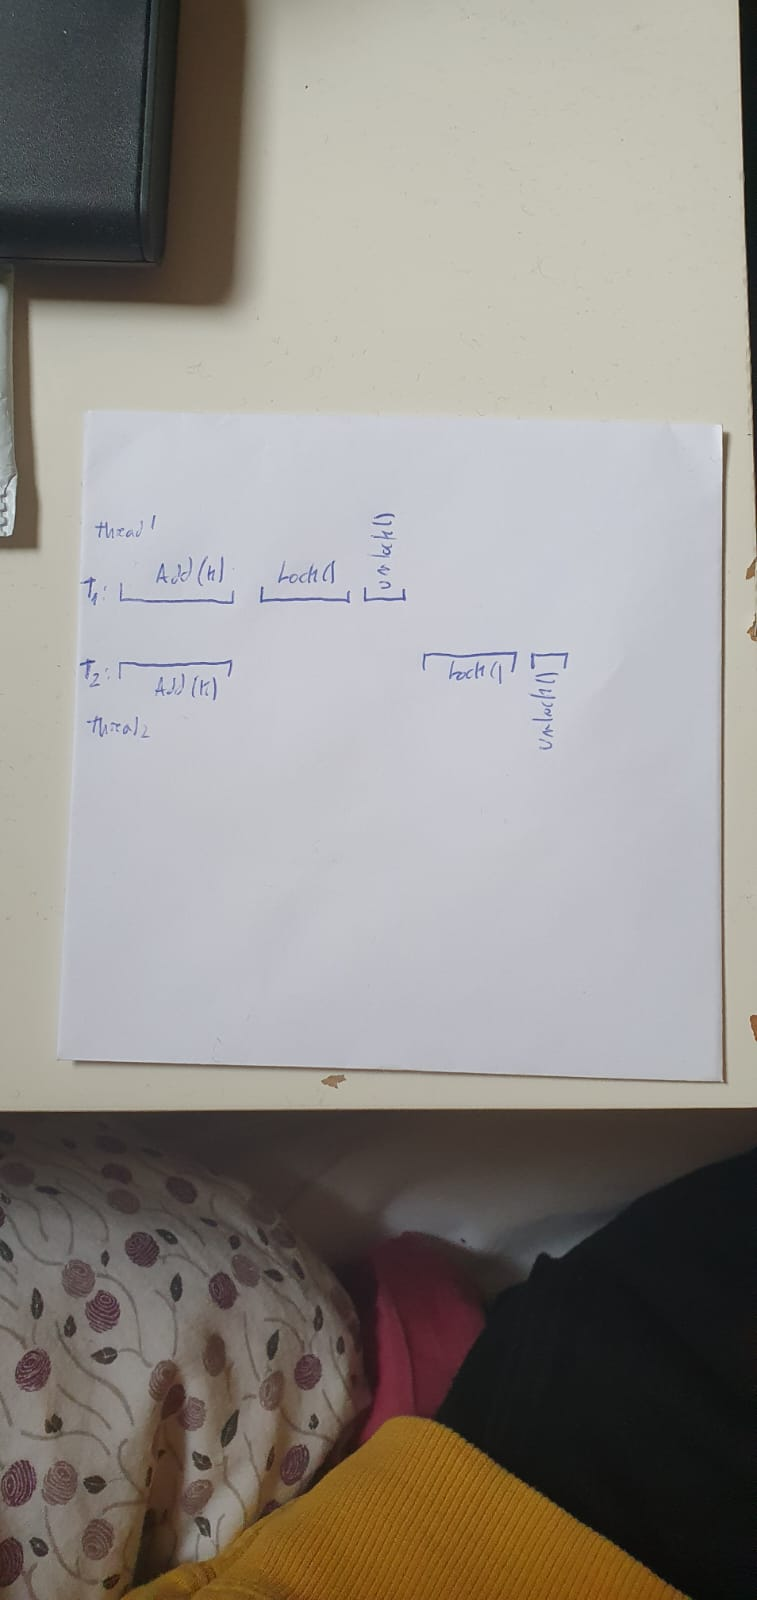 thread 1
T1: Add(k) Lock() unlock()
T2: Add(k) Lock() unlock()
thread2